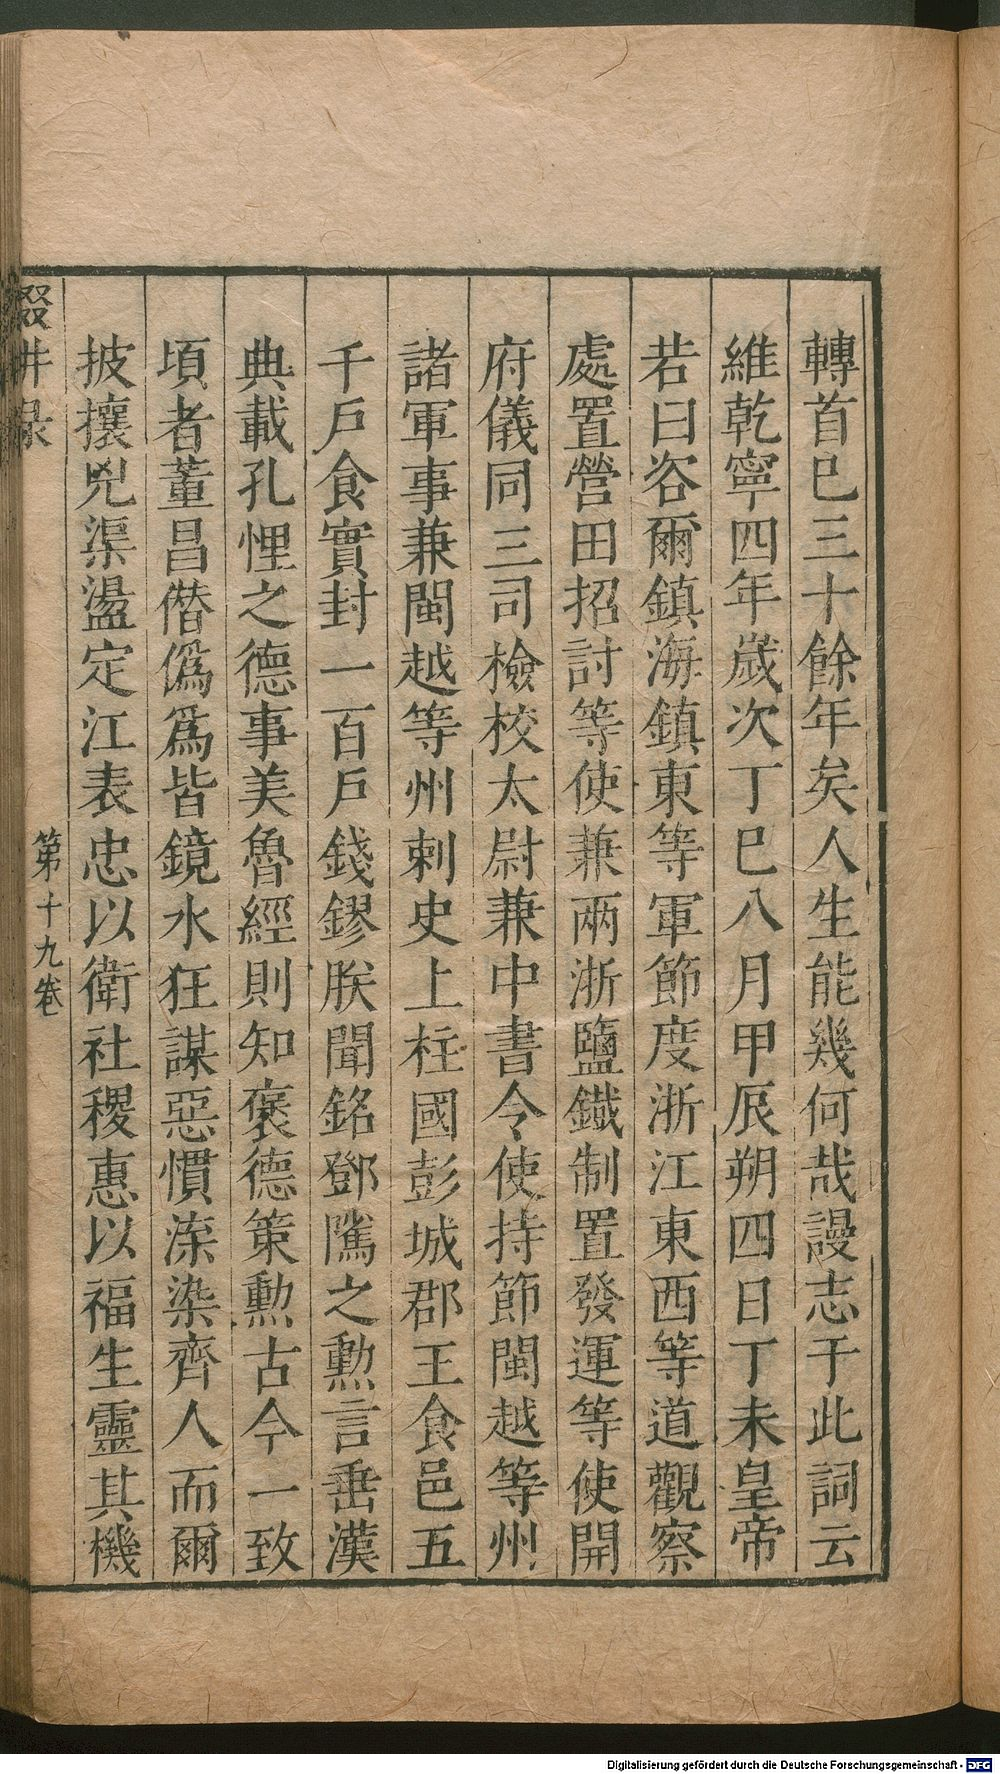 轉首已三十餘年矣人生能幾何哉謾志于此詞云
維乾寧四年歲次丁巳八月甲辰朔四日丁未皇帝
若曰咨爾鎮海鎮東等軍節度浙江東西等道觀察
處置營田招討等使兼兩浙鹽鐵制置發運等使開
府儀同三司檢校太尉兼中書令使持節閩越等州
諸軍事兼閩越等州刺史上柱國彭城郡王食邑五
千戶食實封一百戶錢鏐朕聞銘鄧隲之勲言垂漢
典載孔悝之德事美魯經則知褒德策勲古今一致
頃者董昌僭僞爲昏鏡水狂謀惡慣渁染齊人而爾
披攘兇渠盪定江表忠以衛社稷惠以福生靈其機
輟耕录
第十九卷
Digitalisierung gefördert durch die Deutsche Forschungsgemeinschaft - DFG